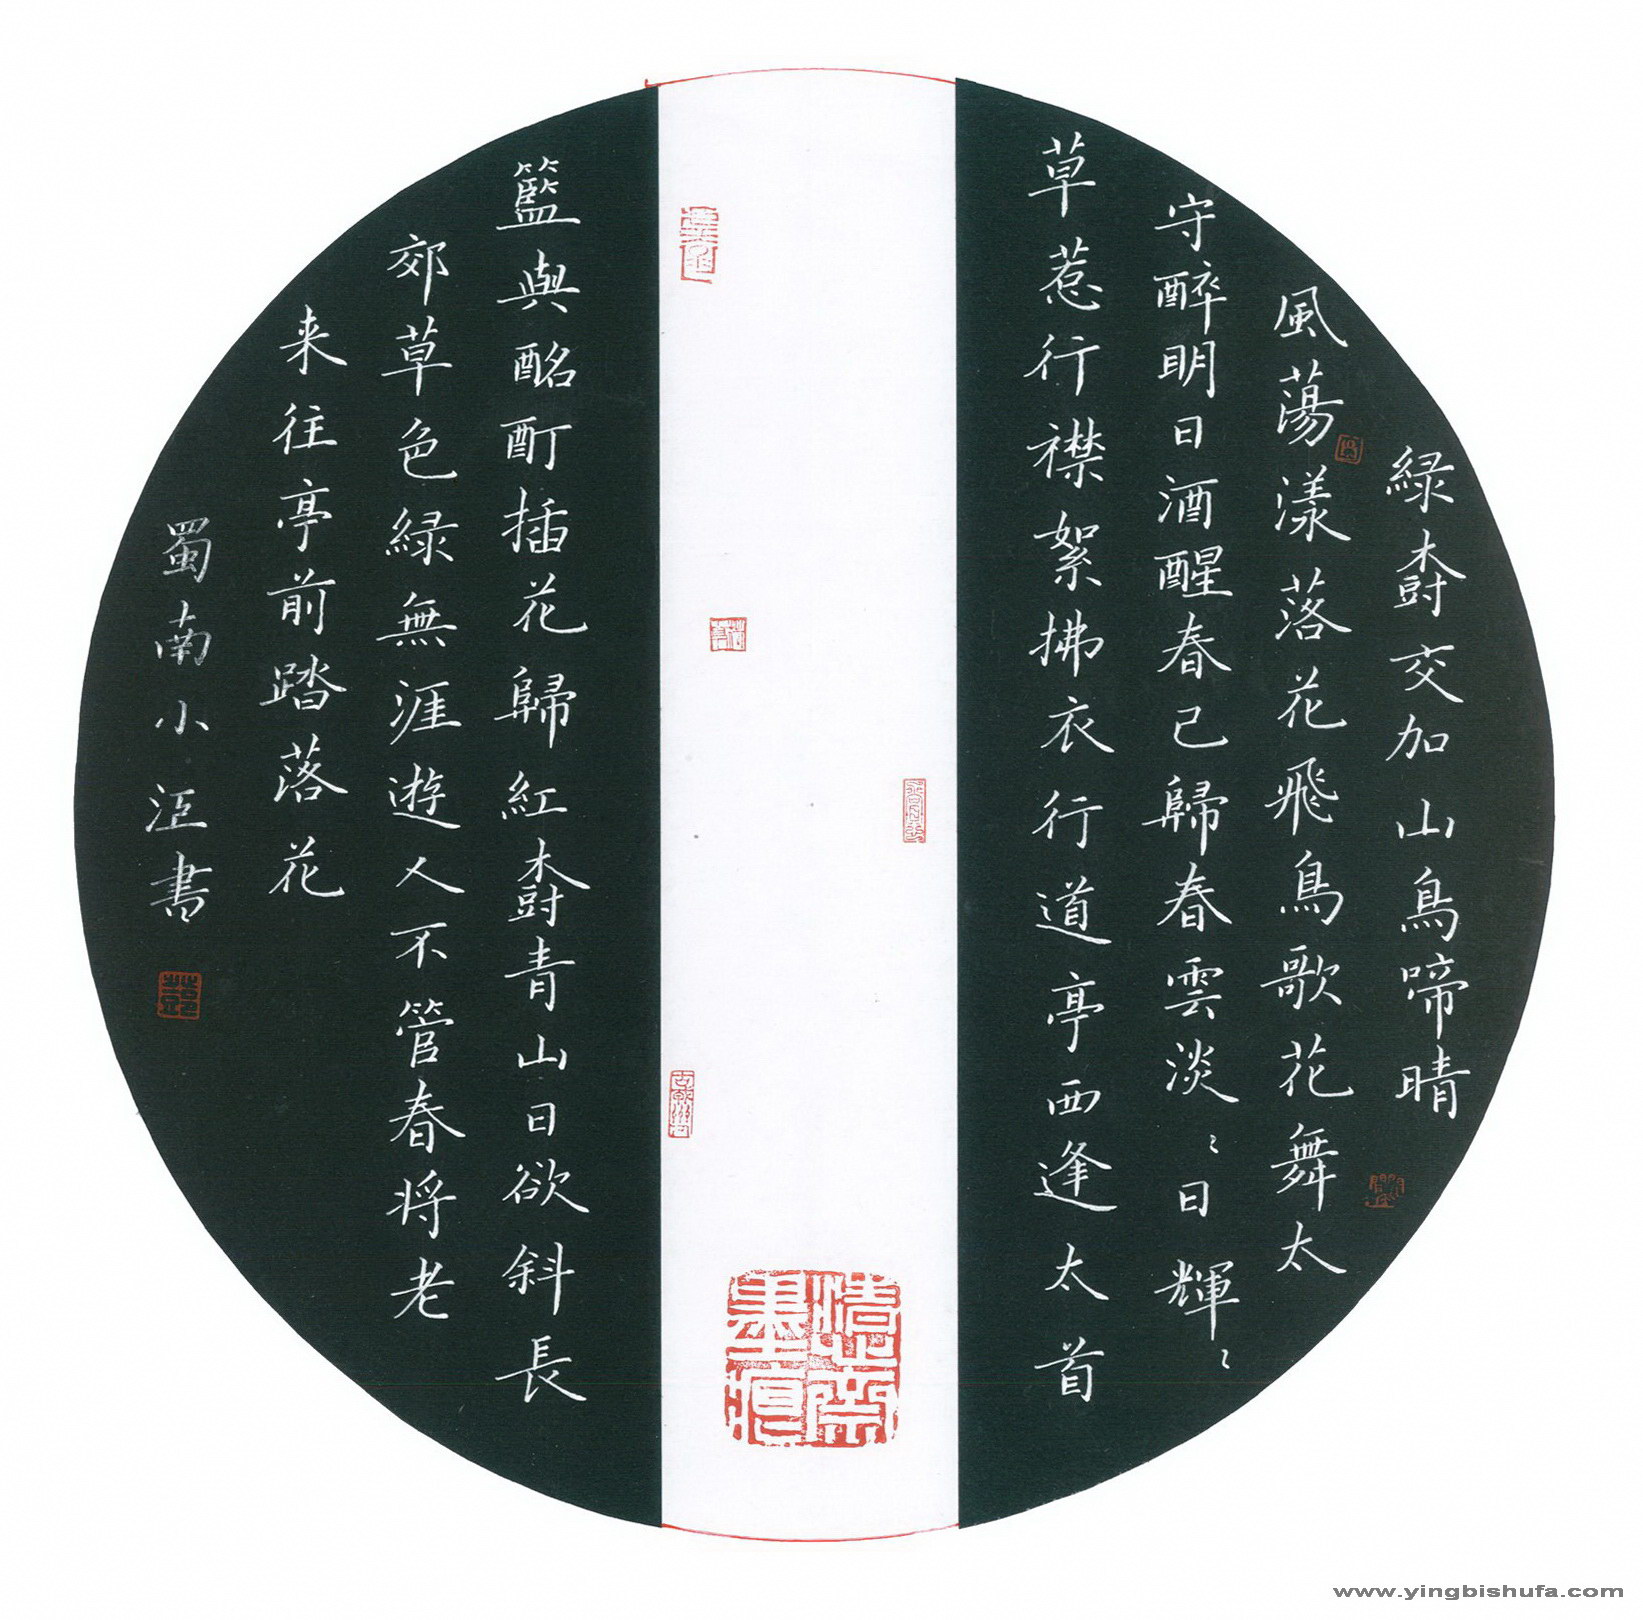 緑樹交加山鳥啼晴
風蕩漾落花飛鳥歌花舞太
守醉明日酒醒春已歸春雲淡〻日輝〻
草惹行襟絮拂衣行道亭西逢太首
籃與酩酊插花歸紅樹青山日欲斜長
郊草色緑無涯遊人不管春将老
来往亭前踏落花
蜀南小書
www.yingbishufa.com